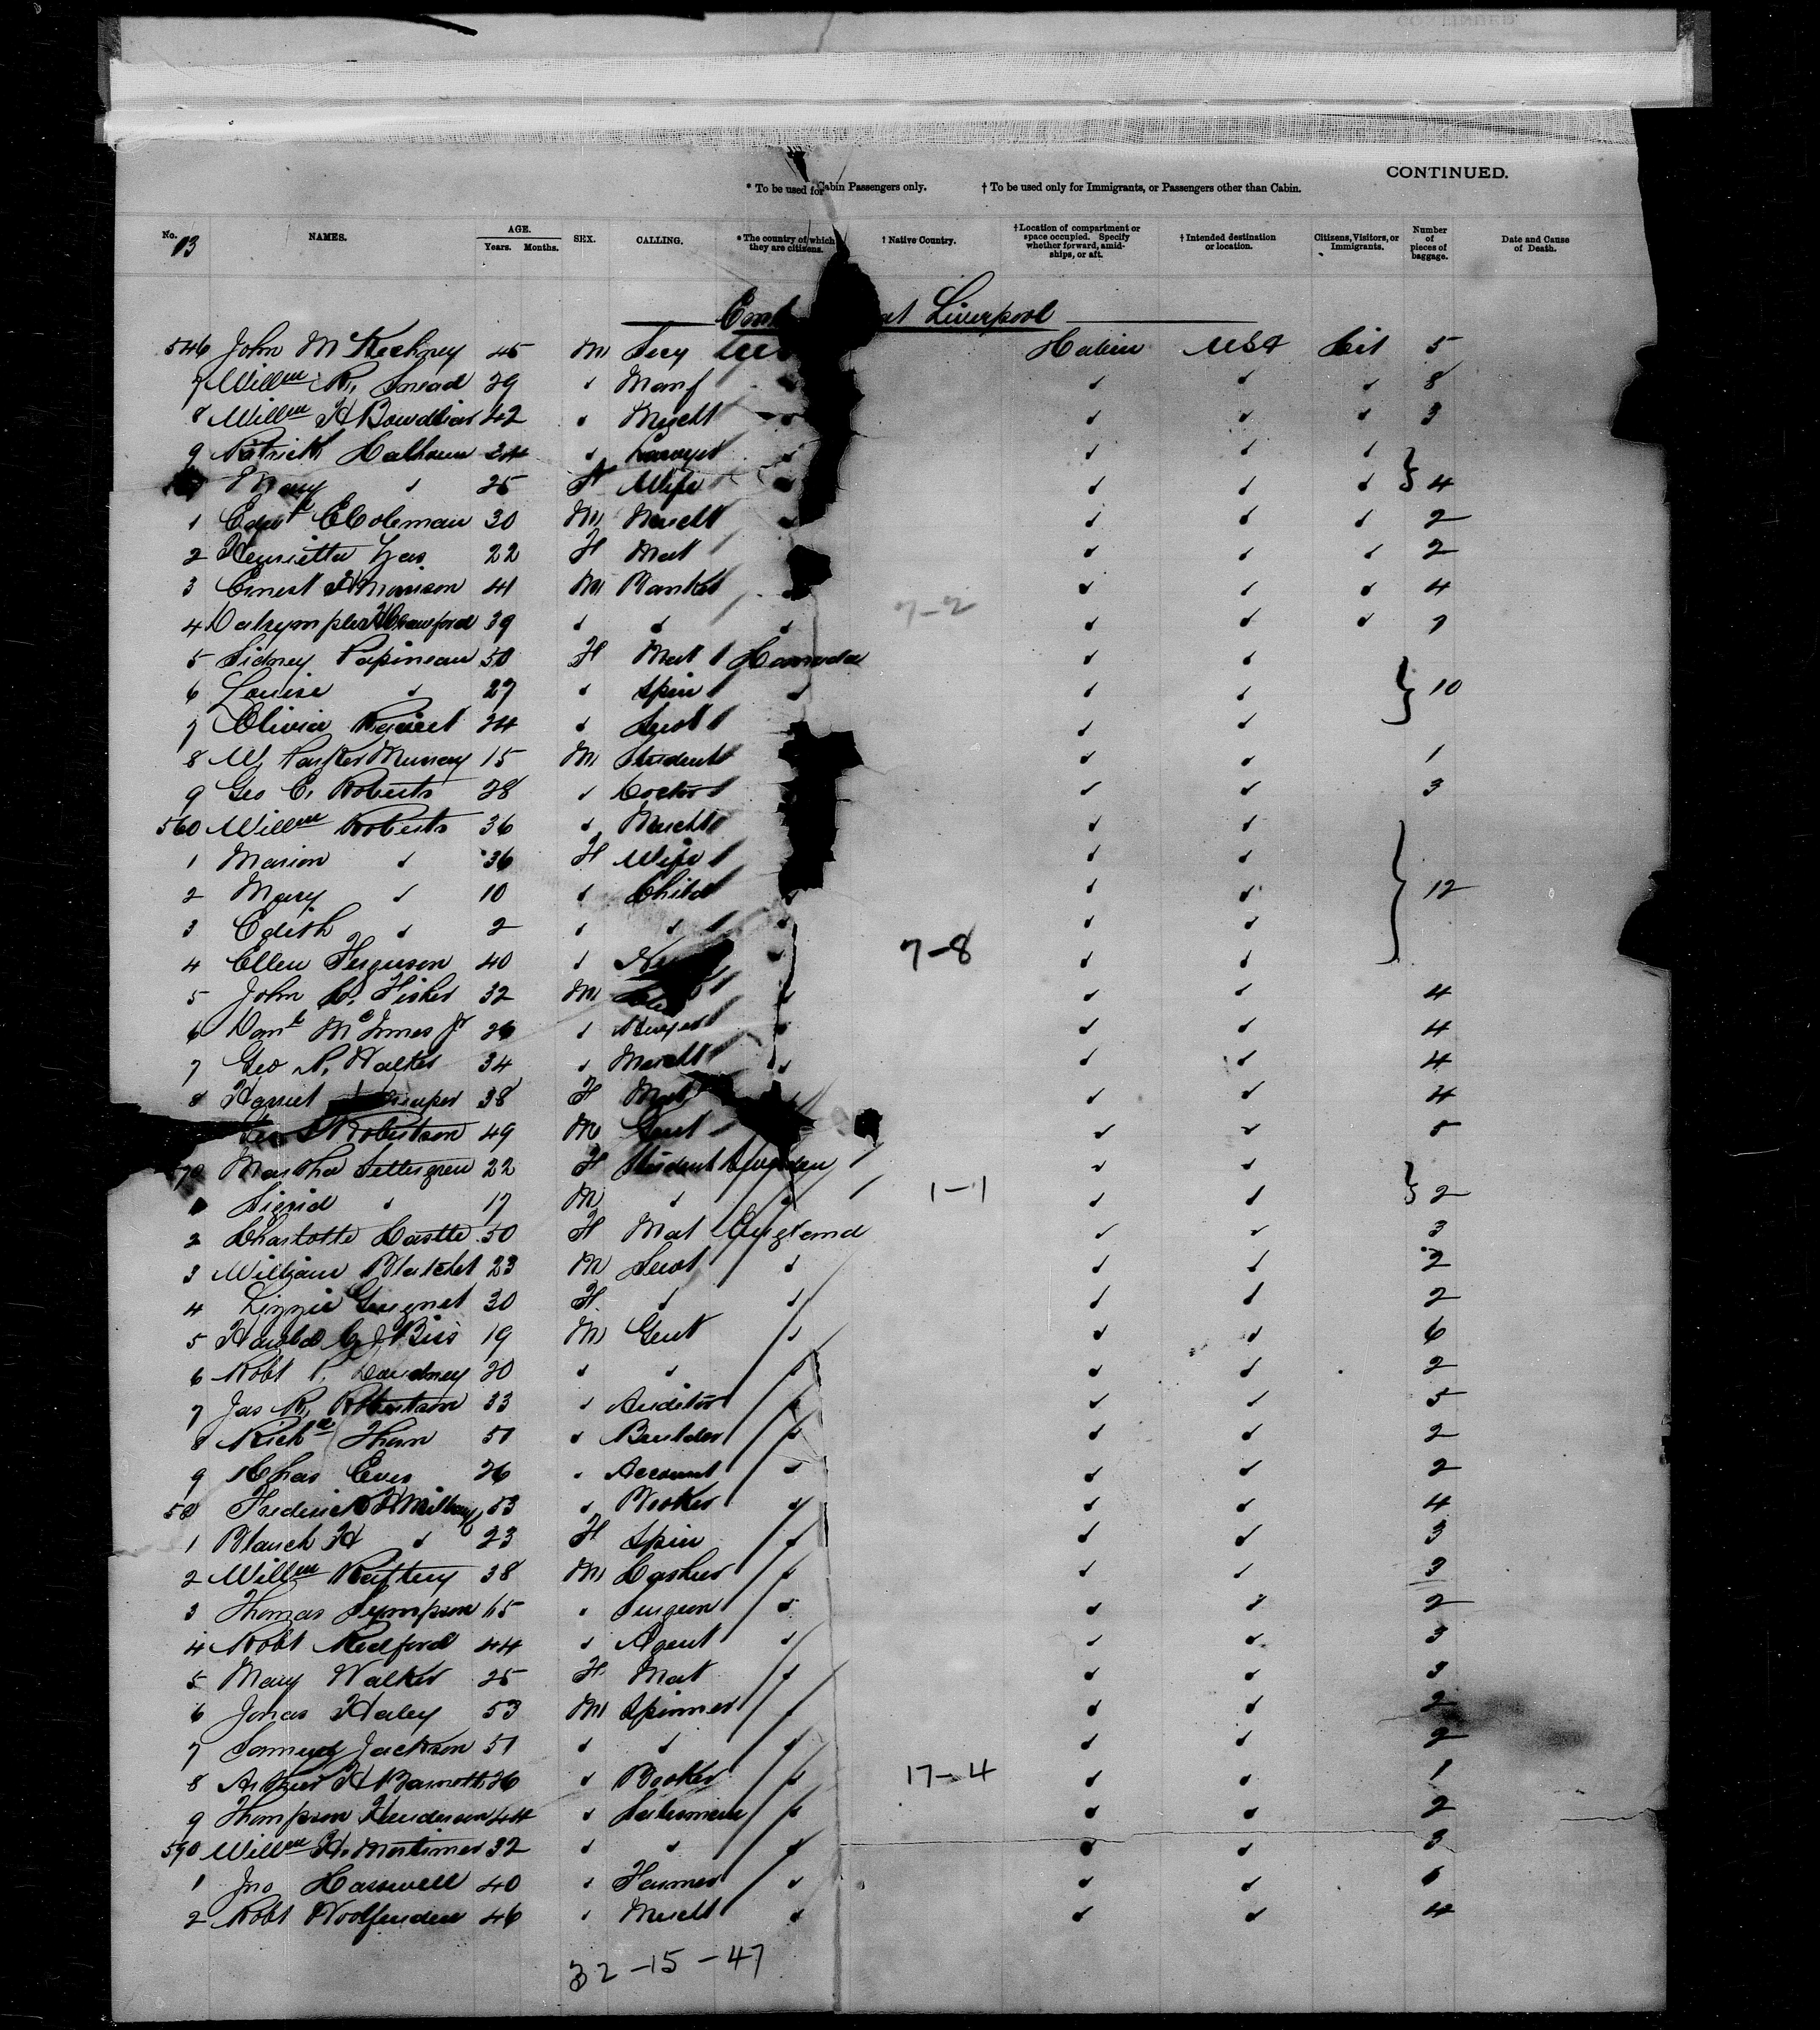 CONTINUED.
* To be used for Cabin Passengers only. † To be used only for Immigrants, or Passengers other than Cabin.
No. 13 NAMES. AGE. Years. Months. SEX. CALLING. * The country of which they are citizens. † Native Country. † Location of compartment or space occupied. Specify whether forward, amidships, or aft. † Intended destination or location. Citizens, Visitors, or Immigrants. Number of pieces of baggage. Date and Cause of Death.
at Liverpool
546 John McKechney 45 M Secy Cabin USA Cit 5
7 Willm R. Snead 29 ✓ Manf ✓ ✓ ✓ 8
8 Willm H 42 ✓ Mercht ✓ ✓ ✓ 3
9 Patrick Calhoun 34 ✓ Lawyer ✓ ✓ ✓
Mary ✓ 25 F Wife ✓ ✓ ✓ } 4
1 Edwd C Coleman 30 M Mercht ✓ ✓ ✓ 2
2 Henrietta 22 F Mat ✓ ✓ ✓ 2
3 Ernest Morrison 41 M Banker ✓ ✓ ✓ 4
4 Dalrymple Crawford 39 ✓ ✓ ✓ 7-2 ✓ ✓ ✓ 7
5 Sidney Papineau 50 F Mat Canada ✓ ✓
6 Louise ✓ 27 ✓ Spin ✓ ✓ ✓ } 10
7 Olivia 24 ✓ Servt ✓ ✓
8 W. Parker Murray 15 M Student ✓ ✓ 1
9 Geo C. Roberts 28 ✓ Doctor ✓ ✓ 3
560 Willm Roberts 36 ✓ Mercht ✓ ✓
1 Marion ✓ 36 F Wife ✓ ✓
2 Mary ✓ 10 ✓ Child ✓ ✓ ✓ } 12
3 Edith ✓ 2 ✓ ✓ ✓ ✓ ✓
4 Ellen Ferguson 40 ✓ ✓ 7-8 ✓ ✓
5 John Fisher 32 M ✓ ✓ ✓ 4
6 McInnes Jr 26 ✓ ✓ ✓ ✓ 4
7 Geo Walker 34 ✓ Mercht ✓ ✓ ✓ 4
8 Harriet 38 F Mat ✓ ✓ 4
Robertson 49 M Gent ✓ ✓ 5
70 Martha Settergren 22 F Student Sweden ✓ ✓
Sigrid ✓ 17 M ✓ ✓ 1-1 ✓ ✓ } 2
2 Charlotte Castle 50 F Mat England ✓ ✓ 3
3 William 23 M Servt ✓ ✓ ✓ 2
4 Lizzie 30 F ✓ ✓ ✓ ✓ 2
5 Harold 19 M Gent ✓ ✓ ✓ 6
6 Robt 20 ✓ ✓ ✓ ✓ ✓ 2
7 Jas R. Robertson 33 ✓ Auditor ✓ ✓ ✓ 5
8 Richd 51 ✓ Builder ✓ ✓ ✓ 2
9 Chas 26 ✓ Account ✓ ✓ ✓ 2
58 Frederick 53 ✓ Broker ✓ ✓ ✓ 4
1 Blanch H ✓ 23 F Spin ✓ ✓ ✓ 3
2 Willm 38 M Cashier ✓ ✓ ✓ 3
3 Thomas Sympson 65 ✓ Surgeon ✓ ✓ ✓ 2
4 Robt Redford 44 ✓ Agent ✓ ✓ ✓ 3
5 Mary Walker 25 F Mat ✓ ✓ ✓ 3
6 Jonas Haley 53 M Spinner ✓ ✓ ✓ 2
7 Samuel Jackson 51 ✓ ✓ ✓ ✓ ✓ 2
8 Arthur H 26 ✓ Broker ✓ 17-4 ✓ ✓ 1
9 Thompson Henderson 44 ✓ Salesman ✓ ✓ ✓ 2
590 Willm H. Mortimer 32 ✓ ✓ ✓ ✓ ✓ 3
1 Jno 40 ✓ Farmer ✓ ✓ ✓
2 Robt Woolfenden 46 ✓ Mercht ✓ ✓ ✓ 4
32-15-47